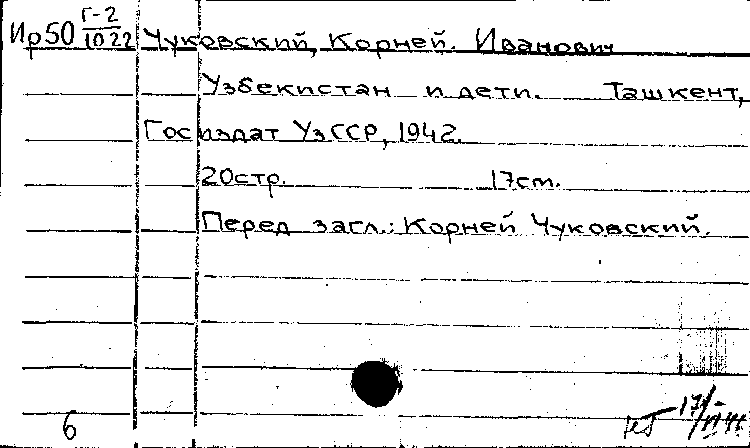 Г-2
Ир50 1022 Чуковский, Корней. Иванович
Узбекистан и дети. Ташкент,
Госиздат УзССР, 1942.
20стр. 17см.
Перед загл.: Корней Чуковский.
17/VI
6